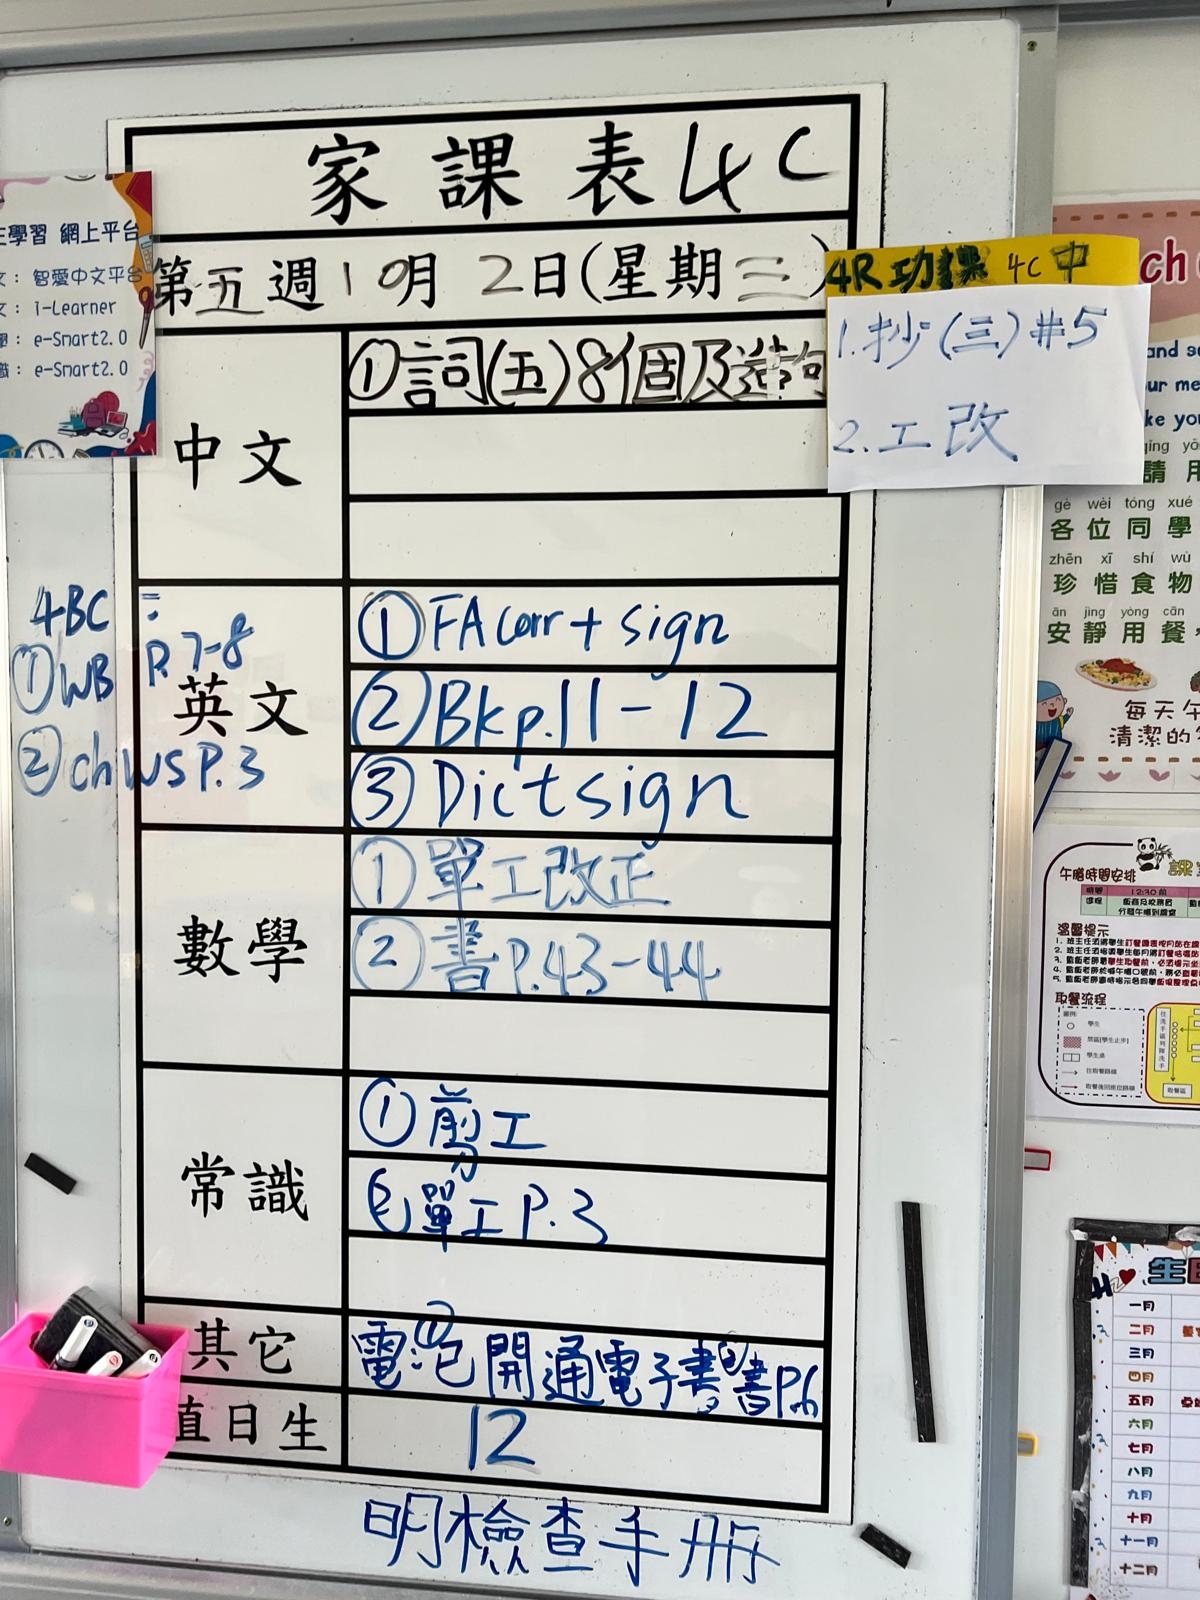 家課表 4C
第五週 10月 2日(星期三)
中文
①詞(五)8個及造句
英文
①FA corr + sign
②Bk p.11-12
③Dict sign
數學
①單工改正
②書P.43-44
常識
①剪工
單工 P.3
其它
電 ① 開通電子書 ② 書P.6
直日生
12
明檢查手冊
4BC
①WB P. 7-8
②ch WS P.3
4R功課 4C 中
1.抄(三)#5
2.工改
主學習 網上平台
文: 智愛中文平台
文: i-Learner
學: e-Smart2.0
識: e-Smart2.0
ch
and
ur me
ke yo
qǐng yò
請 用
gè wèi tóng xué
各 位 同 學
zhēn xī shí wù
珍 惜 食 物
ān jìng yòng cān
安 靜 用 餐
每天午
清潔的
午膳時間安排
課
時間 12:30 前
溫馨提示
取餐流程
圖例:
學生
禁區[學生止步]
學生桌
取餐區
生日
一月
二月
三月
四月
五月
六月
七月
八月
九月
十月
十一月
十二月